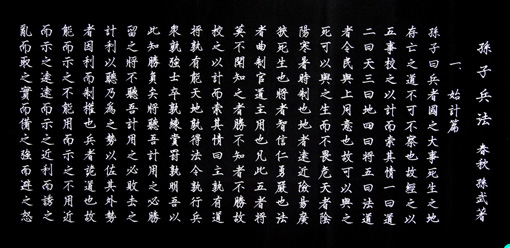 孫子兵法 春秋 孫武著
一、始計篇
孫子曰兵者國之大事死生之地
存亡之道不可不察也故經之以
五事校之以計而索其情一曰道
二曰天三曰地四曰將五曰法道
者令民與上同意也故可以與之
死可以與之生而不畏危天者陰
陽寒暑時制也地者遠近險易廣
狹死生也將者智信仁勇嚴也法
者曲制官道主用也凡此五者將
莫不聞知之者勝不知者不勝故
校之以計而索其情曰主孰有道
將孰有能天地孰得法令孰行兵
眾孰強士卒孰練賞罰孰明吾以
此知勝負矣將聽吾計用之必勝
留之將不聽吾計用之必敗去之
計利以聽乃為之勢以佐其外勢
者因利而制權也兵者詭道也故
能而示之不能用而示之不用近
而示之遠遠而示之近利而誘之
亂而取之實而備之強而避之怒